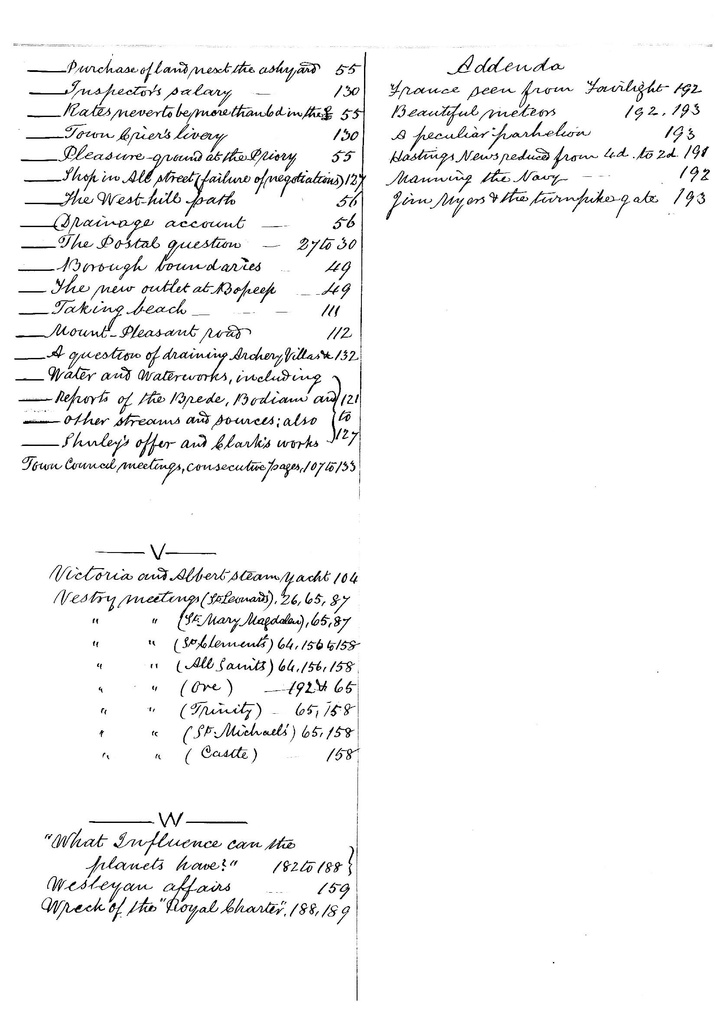 — Purchase of land next the ashyard 55
— Inspector's salary — 130
— Rates never to be more than 6d in the £ 55
— Town Crier's livery 130
— Pleasure-ground at the Priory 55
— Shop in All street (failure of negotiations) 127
— The West hill path 56
— Drainage account — 56
— The Postal question — 27 to 30
— Borough boundaries — 49
— The new outlet at Bopeep — 49
— Taking beach — 111
— Mount-Pleasant road 112
— A question of draining Archery Villas &c 132
— Water and Waterworks, including
— Reports of the Brede, Bodiam and } 121
— other streams and sources; also } to
— Shirley's offer and Clark's works } 127
Town Council meetings, consecutive pages, 107 to 133
— V —
Victoria and Albert steam Yacht 104
Vestry meetings (St Leonards), 26, 65, 87
" " (St Mary Magdalen), 65, 87
" " (St Clements) 64, 156 to 158
" " (All Saints) 64, 156, 158
" " (Ore) — 192 & 65
" " (Trinity) — 65, 158
" " (St Michael's) 65, 158
" " (Castle) 158
— W —
"What Influence can the
planets have?" 182 to 188 }
Wesleyan affairs — 159
Wreck of the "Royal Charter", 188, 189
Addenda
France seen from Fairlight 192
Beautiful meteors 192, 193
A peculiar parhelion 193
Hastings News reduced from 4d. to 2d 191
Manning the Navy — 192
Jim Myers & the turnpike gate 193